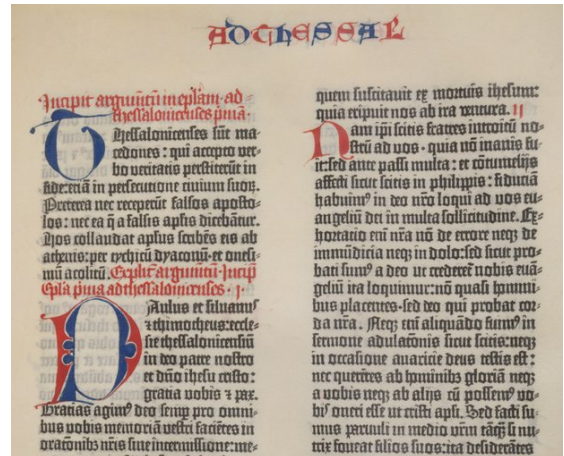 AD THESSAL
Incipit argumētū in eplam ad
thessalonicenses prima
Thessalonicenses sūt ma-
cedones: qui accepto ver-
bo veritatis perstiterūt in
fide: etiā in persecutione civium suoꝝ.
Preterea nec receperūt falsos aposto-
los: nec ea q̄ a falsis apl̄is dicebātur.
Hos collaudat apl̄us scribēs eis ab
athenis: per tychicū dyaconū et onesi-
mū acolitū. Explicit argumētū Incipit
Epl̄a prima ad thessalonicenses. I
Paulus et siluanus
et thimotheus: eccle-
sie thessalonicensiū
in deo patre nostro
et dn̄o ihesu cristo:
gratia vobis et pax.
Gratias agimꝰ deo semp̄ pro omni-
bus vobis memoriā vestri faciētes in
oratōnibꝫ nr̄is sine intermissione: me-
quem suscitauit ex mortuis ihesum:
quia eripuit nos ab ira ventura. II
Nam ip̄i scitis fratres introitū no-
strū ad vos. quia nō inanis fu-
it: sed ante passi multa: et cōtumelijs
affecti sicut scitis in philippis: fiduciā
habuimꝰ in deo nr̄o loqui ad vos eu-
angeliū dei in multa sollicitudine. Ex-
hortatio eni nr̄a nō de errore neqꝫ de
immūdicia neqꝫ in dolo: sed sicut pro-
bati sumꝰ a deo ut crederet nobis euā-
geliū ita loquimur: nō quasi homini-
bus placentes. sed deo qui probat cor-
da nr̄a. Neqꝫ eni aliquādo fuimꝰ in
sermone adulatōnis sicut scitis: neqꝫ
in occasione auaricie deus testis est:
nec querētes ab hominibꝫ gloriā neqꝫ
a vobis neqꝫ ab alijs cū possemꝰ vo-
bis oneri esse ut cristi apl̄i. Sed facti su-
mus paruuli in medio vr̄m tāq̄ si nu-
trix foueat filios suos: ita desiderātes